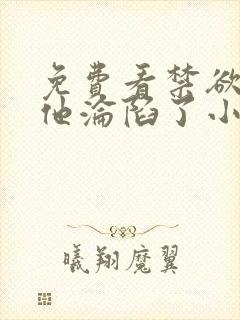 免费看禁欲
他沦陷了小
曦翔魔翼